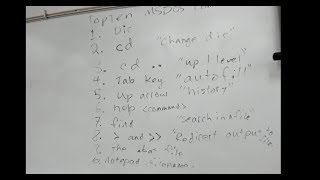 TopTen MSDOS
1. Dir
2. cd "change dir"
3. cd .. "up 1 level"
4. Tab key "autofill"
5. up arrow "history"
6. help command
7. find "search in a file"
8. > and >> "Redirect output to file"
9. The above
10. notepad